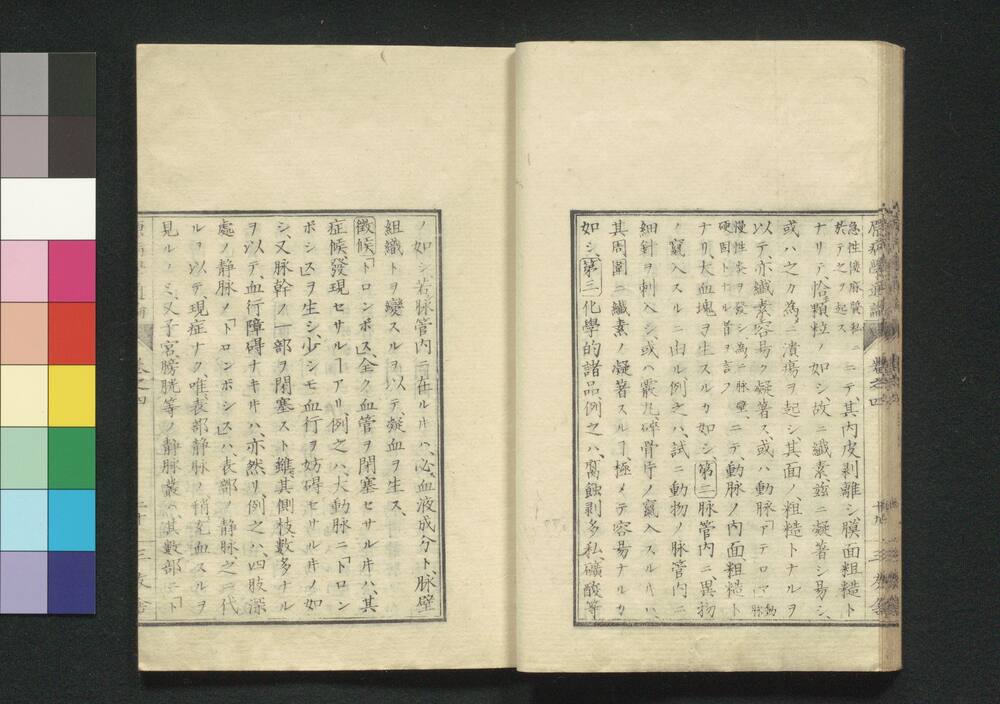 原病學通論
卷之四
急性僂麻質私ニ
於テ之ヲ起ス
ニテ、其内皮剥離シ、膜面粗糙ト
ナリテ、恰顆粒ノ如シ、故ニ纖素、兹ニ凝著シ易シ、
或ハ之カ為ニ潰瘍ヲ起シ、其面ノ粗糙トナルヲ
以テ、亦纖素容易ク凝著ス、或ハ動脉「アテロマ」
慢性炎ヲ發シ、為ニ脉壁、
硬固トナル者ヲ言フ
ニテ、動脉ノ内面、粗糙ト
ナリ、大血塊ヲ生スルカ如シ、第二脉管内ニ、異物
ノ竄入スルニ由ル例之ハ、試ニ動物ノ脉管内ニ
細針ヲ刺入シ或ハ霰丸碎骨片ノ竄入スルキハ、
其周圍ニ纖素ノ凝著スルヿ、極メテ容易ナルカ
如シ、第三化學的諸品例之ハ、腐蝕剥多私、礦酸等
ノ如シ、若脉管内ニ在ルキハ、必血液成分ト、脉壁
組織トヲ變スルヲ以テ、凝血ヲ生ス、
徵候「トロンボス」、全ク血管ヲ閉塞セサルキハ、其
症候發現セサルヿアリ、例之ハ、大動脉ニ「トロン
ボシス」ヲ生シ、少シモ血行ヲ妨碍セサルキノ如
シ、又脉幹ノ一部ヲ閉塞スト雖、其側枝、數多ナル
ヲ以テ、血行障碍ナキキハ、亦然リ、例之ハ、四肢深
處ノ静脉ノ「トロンボシス」ハ、表部ノ静脉、之ニ代
ルヲ以テ、現症ナク、唯、表部静脉ノ稍充血スルヲ
見ルノミ、又子宮膀胱等ノ静脉叢ハ、其數部ニ「ト